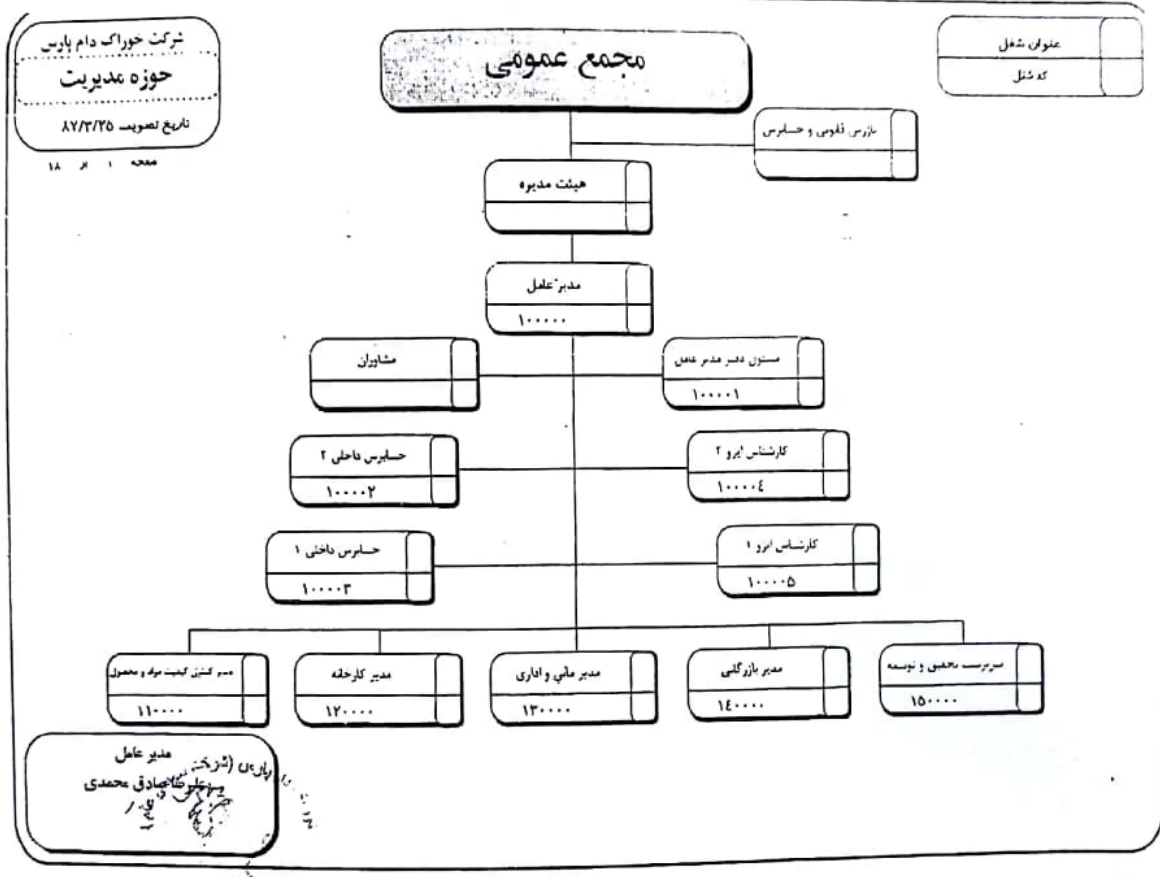 شرکت خوراک دام پارس
حوزه مدیریت
تاریخ تصویب ۸۷/۳/۲۵
صفحه ۱ از ۱۸
مجمع عمومی
عنوان شغل
کد شغل
بازرس قانونی و حسابرس
هیئت مدیره
مدیر عامل
۱۰۰۰۰۰
مشاوران
مسئول دفتر مدیر عامل
۱۰۰۰۰۱
حسابرس داخلی ۲
۱۰۰۰۰۲
کارشناس ایزو ۲
۱۰۰۰۰٤
حسابرس داخلی ۱
۱۰۰۰۰۳
کارشناس ایزو ۱
۱۰۰۰۰۵
سرپرست تحقیق و توسعه
۱۵۰۰۰۰
مدیر بازرگانی
۱٤۰۰۰۰
مدیر مالی و اداری
۱۳۰۰۰۰
مدیر کارخانه
۱۲۰۰۰۰
مدیر کنترل کیفیت مواد و محصول
۱۱۰۰۰۰
مدیر عامل
صادق محمدی